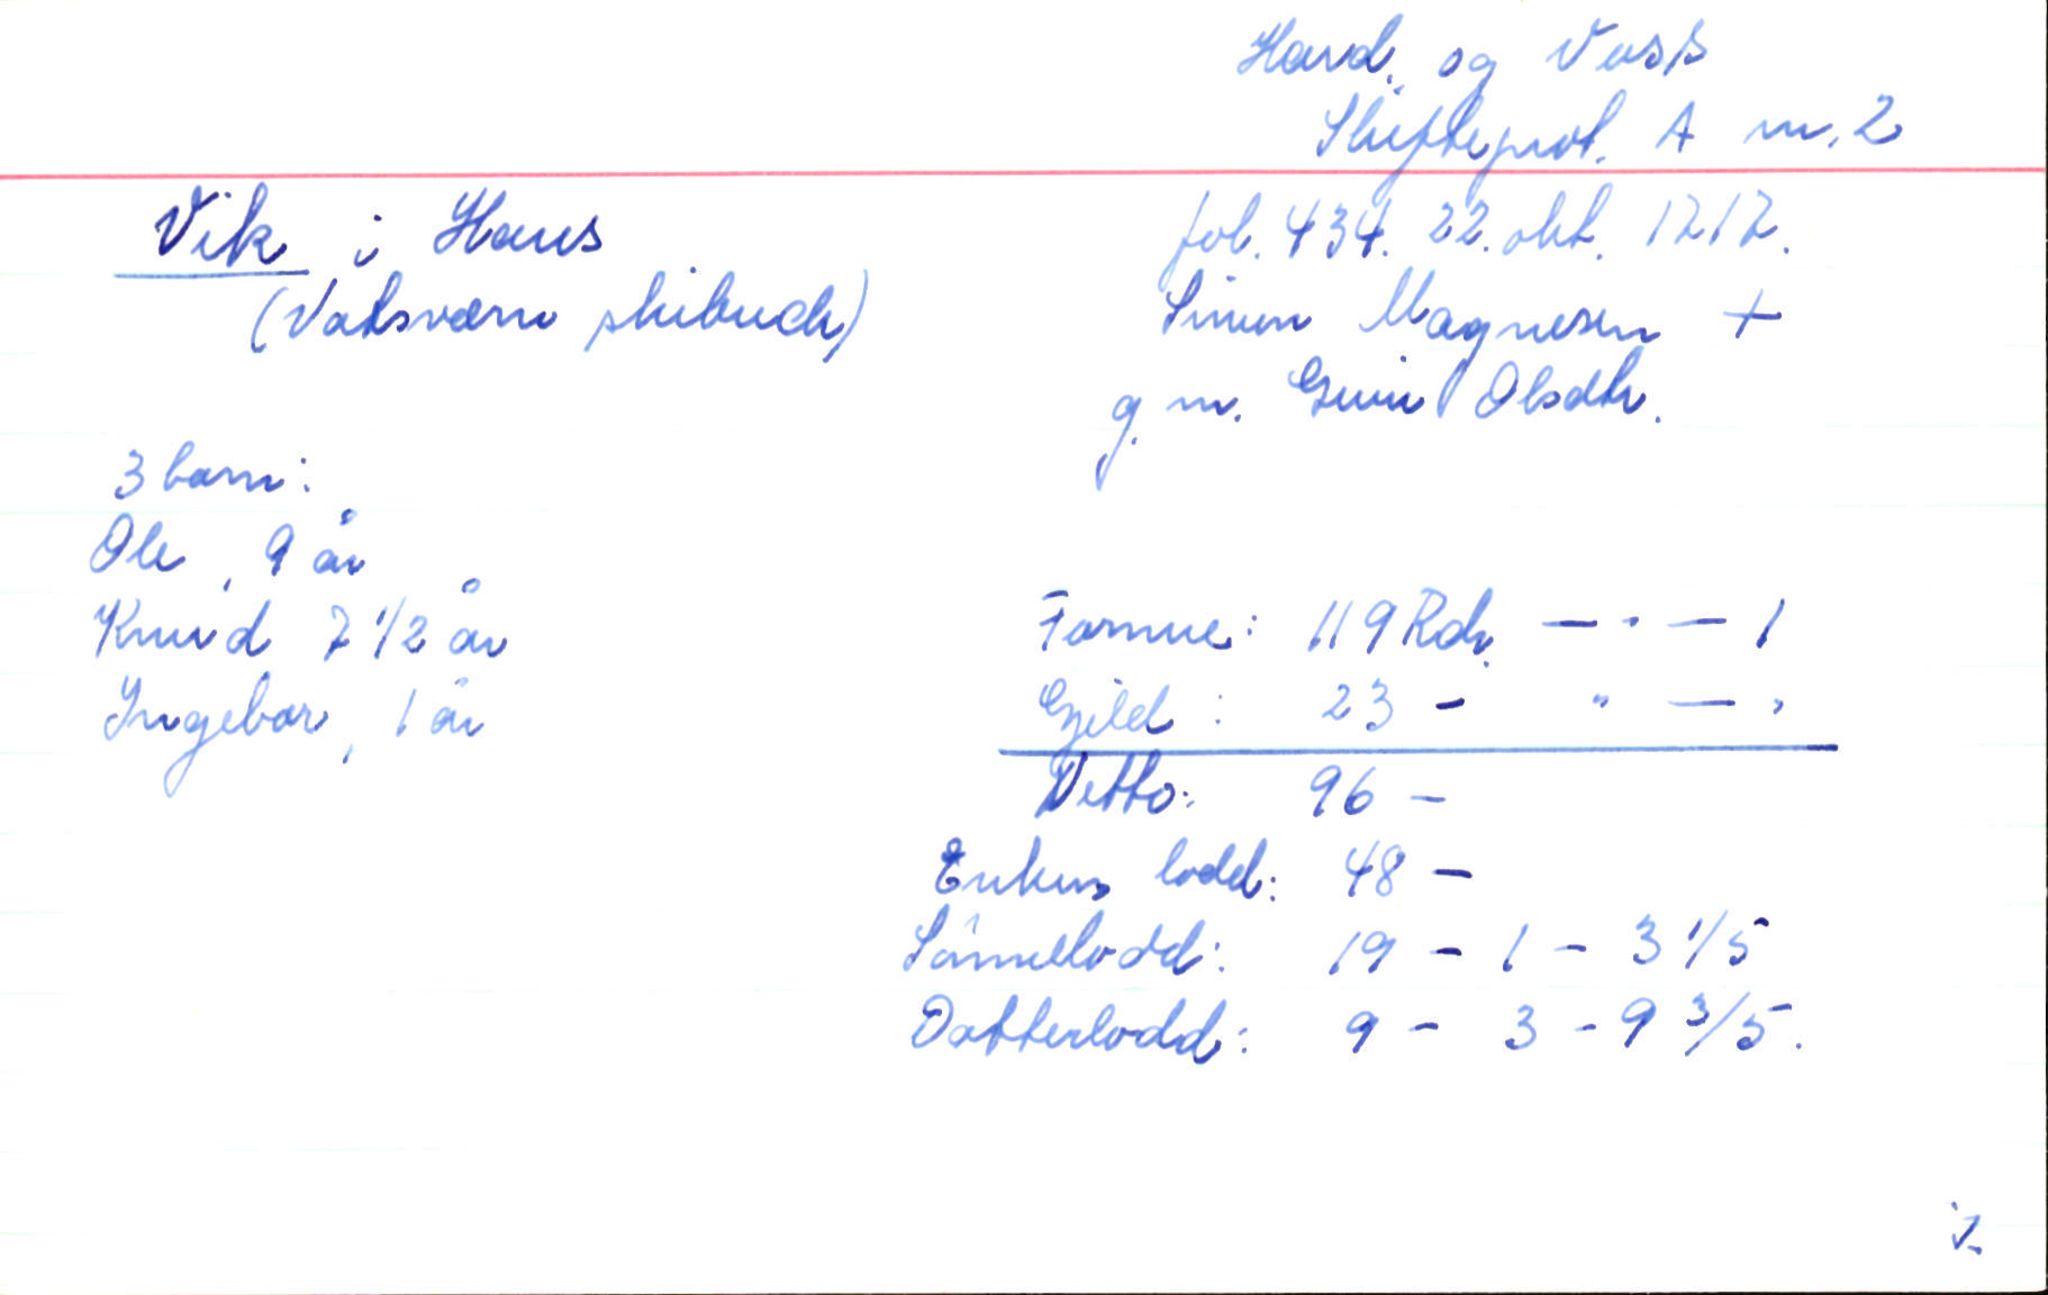 Hard. og Voss
Skifteprot. A nr. 2
Vik i Haus
fol. 434. 22. okt. 1717.
(Vatsværn skibuch)
Simen Magnesen +
g. m. Guni Olsdtr.
3 barn:
Ole, 9 år
Knud 7 1/2 år
Ingebor, 1 år
Formue: 119 Rdr. — · — 1
Gjeld: 23 - " — "
Netto: 96 -
Enkens lodd: 48 -
Sønnelodd: 19 - 1 - 3 1/5
Datterlodd: 9 - 3 - 9 3/5.